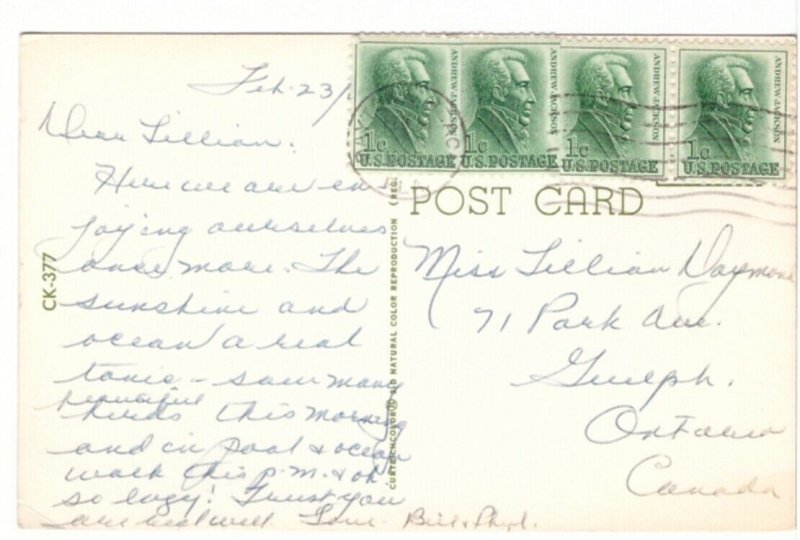 Feb. 23/
Dear Lillian.
Here we are en
joying ourselves
once more. The
sunshine and
ocean a real
tonic - saw many
beautiful
birds this morning
and in pool & ocean
walk this p.m. & oh
so lazy! Trust you
are well. Love Bill & Phyl.
CK-377
CURTEICHCOLOR® 3-D NATURAL COLOR REPRODUCTION (REG.
ANDREW JACKSON
1c
U.S. POSTAGE
ANDREW JACKSON
1c
U.S. POSTAGE
ANDREW JACKSON
1c
U.S. POSTAGE
ANDREW JACKSON
1c
U.S. POSTAGE
POST CARD
Miss Lillian Daymond
71 Park Ave.
Guelph.
Ontario
Canada